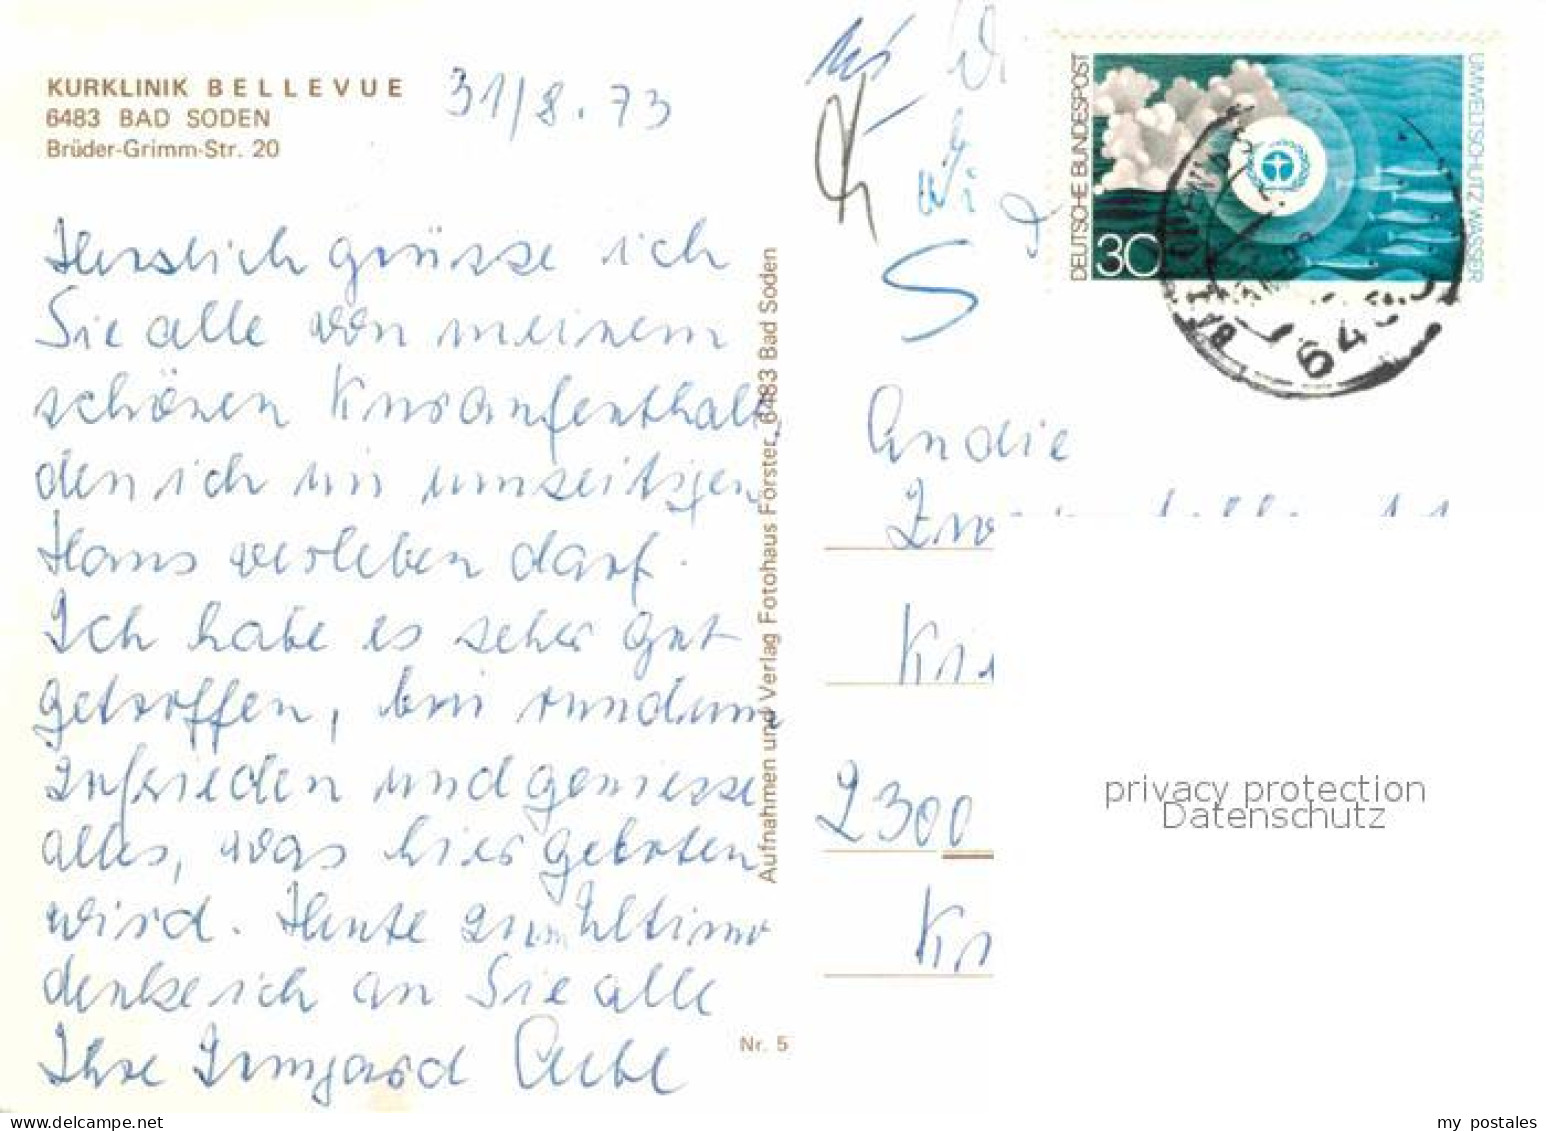 KURKLINIK BELLEVUE
6483 BAD SODEN
Brüder-Grimm-Str. 20
31/8.73
Herzlich grüsse ich
Sie alle von meinem
schönen Kuraufenthalt,
den ich im umseitigen
Haus verleben darf.
Ich habe es sehr gut
getroffen, bin rundum
zufrieden und geniesse
alles, was hier geboten
wird. Heute zum Ultimo
denke ich an Sie alle
Ihre Irmgard
Nr. 5
Aufnahmen und Verlag Fotohaus Förster, 6483 Bad Soden
DEUTSCHE BUNDESPOST
30
UMWELTSCHUTZ WASSER
An die
2300
privacy protection
Datenschutz
my postales